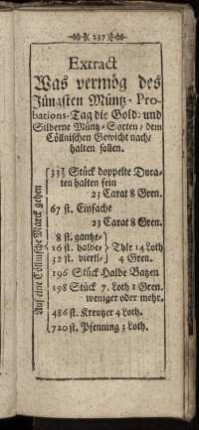 237
Extract
Was vermög des
Jüngsten Müntz-Pro-
bations-Tag die Gold- und
Silberne Müntz-Sorten / dem
Cöllnischen Gewicht nach /
halten sollen.
Auf eine Cöllnische Marck gehen
33½ Stück doppelte Duca-
ten halten fein
23 Carat 8 Gren.
67 st. Einfache
23 Carat 8 Gren.
8 st. gantze-
16 st. halbe- Thlr 14 Loth
32 st. viertl- 4 Gren.
196 Stück Halbe Batzen
198 Stück 7. Loth 1 Gren.
weniger oder mehr.
486 st. Kreutzer 4 Loth.
720 st. Pfenning 3 Loth.